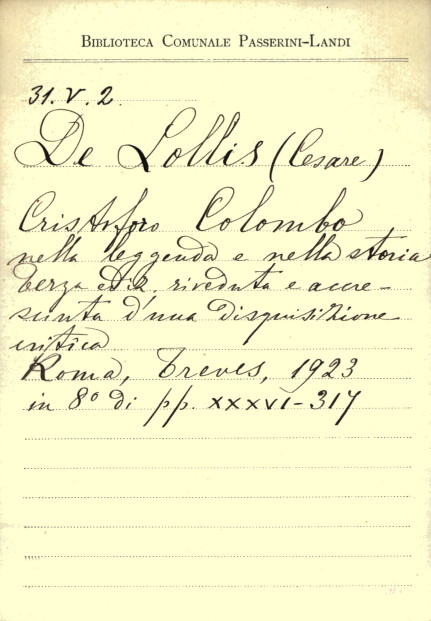 BIBLIOTECA COMUNALE PASSERINI-LANDI
31.V.2.
De Lollis (Cesare)
Cristoforo Colombo
nella leggenda e nella storia
terza ediz. riveduta e accre-
sciuta d'una disquisizione
critica
Roma, Treves, 1923
in 8º di pp. XXXVI-317